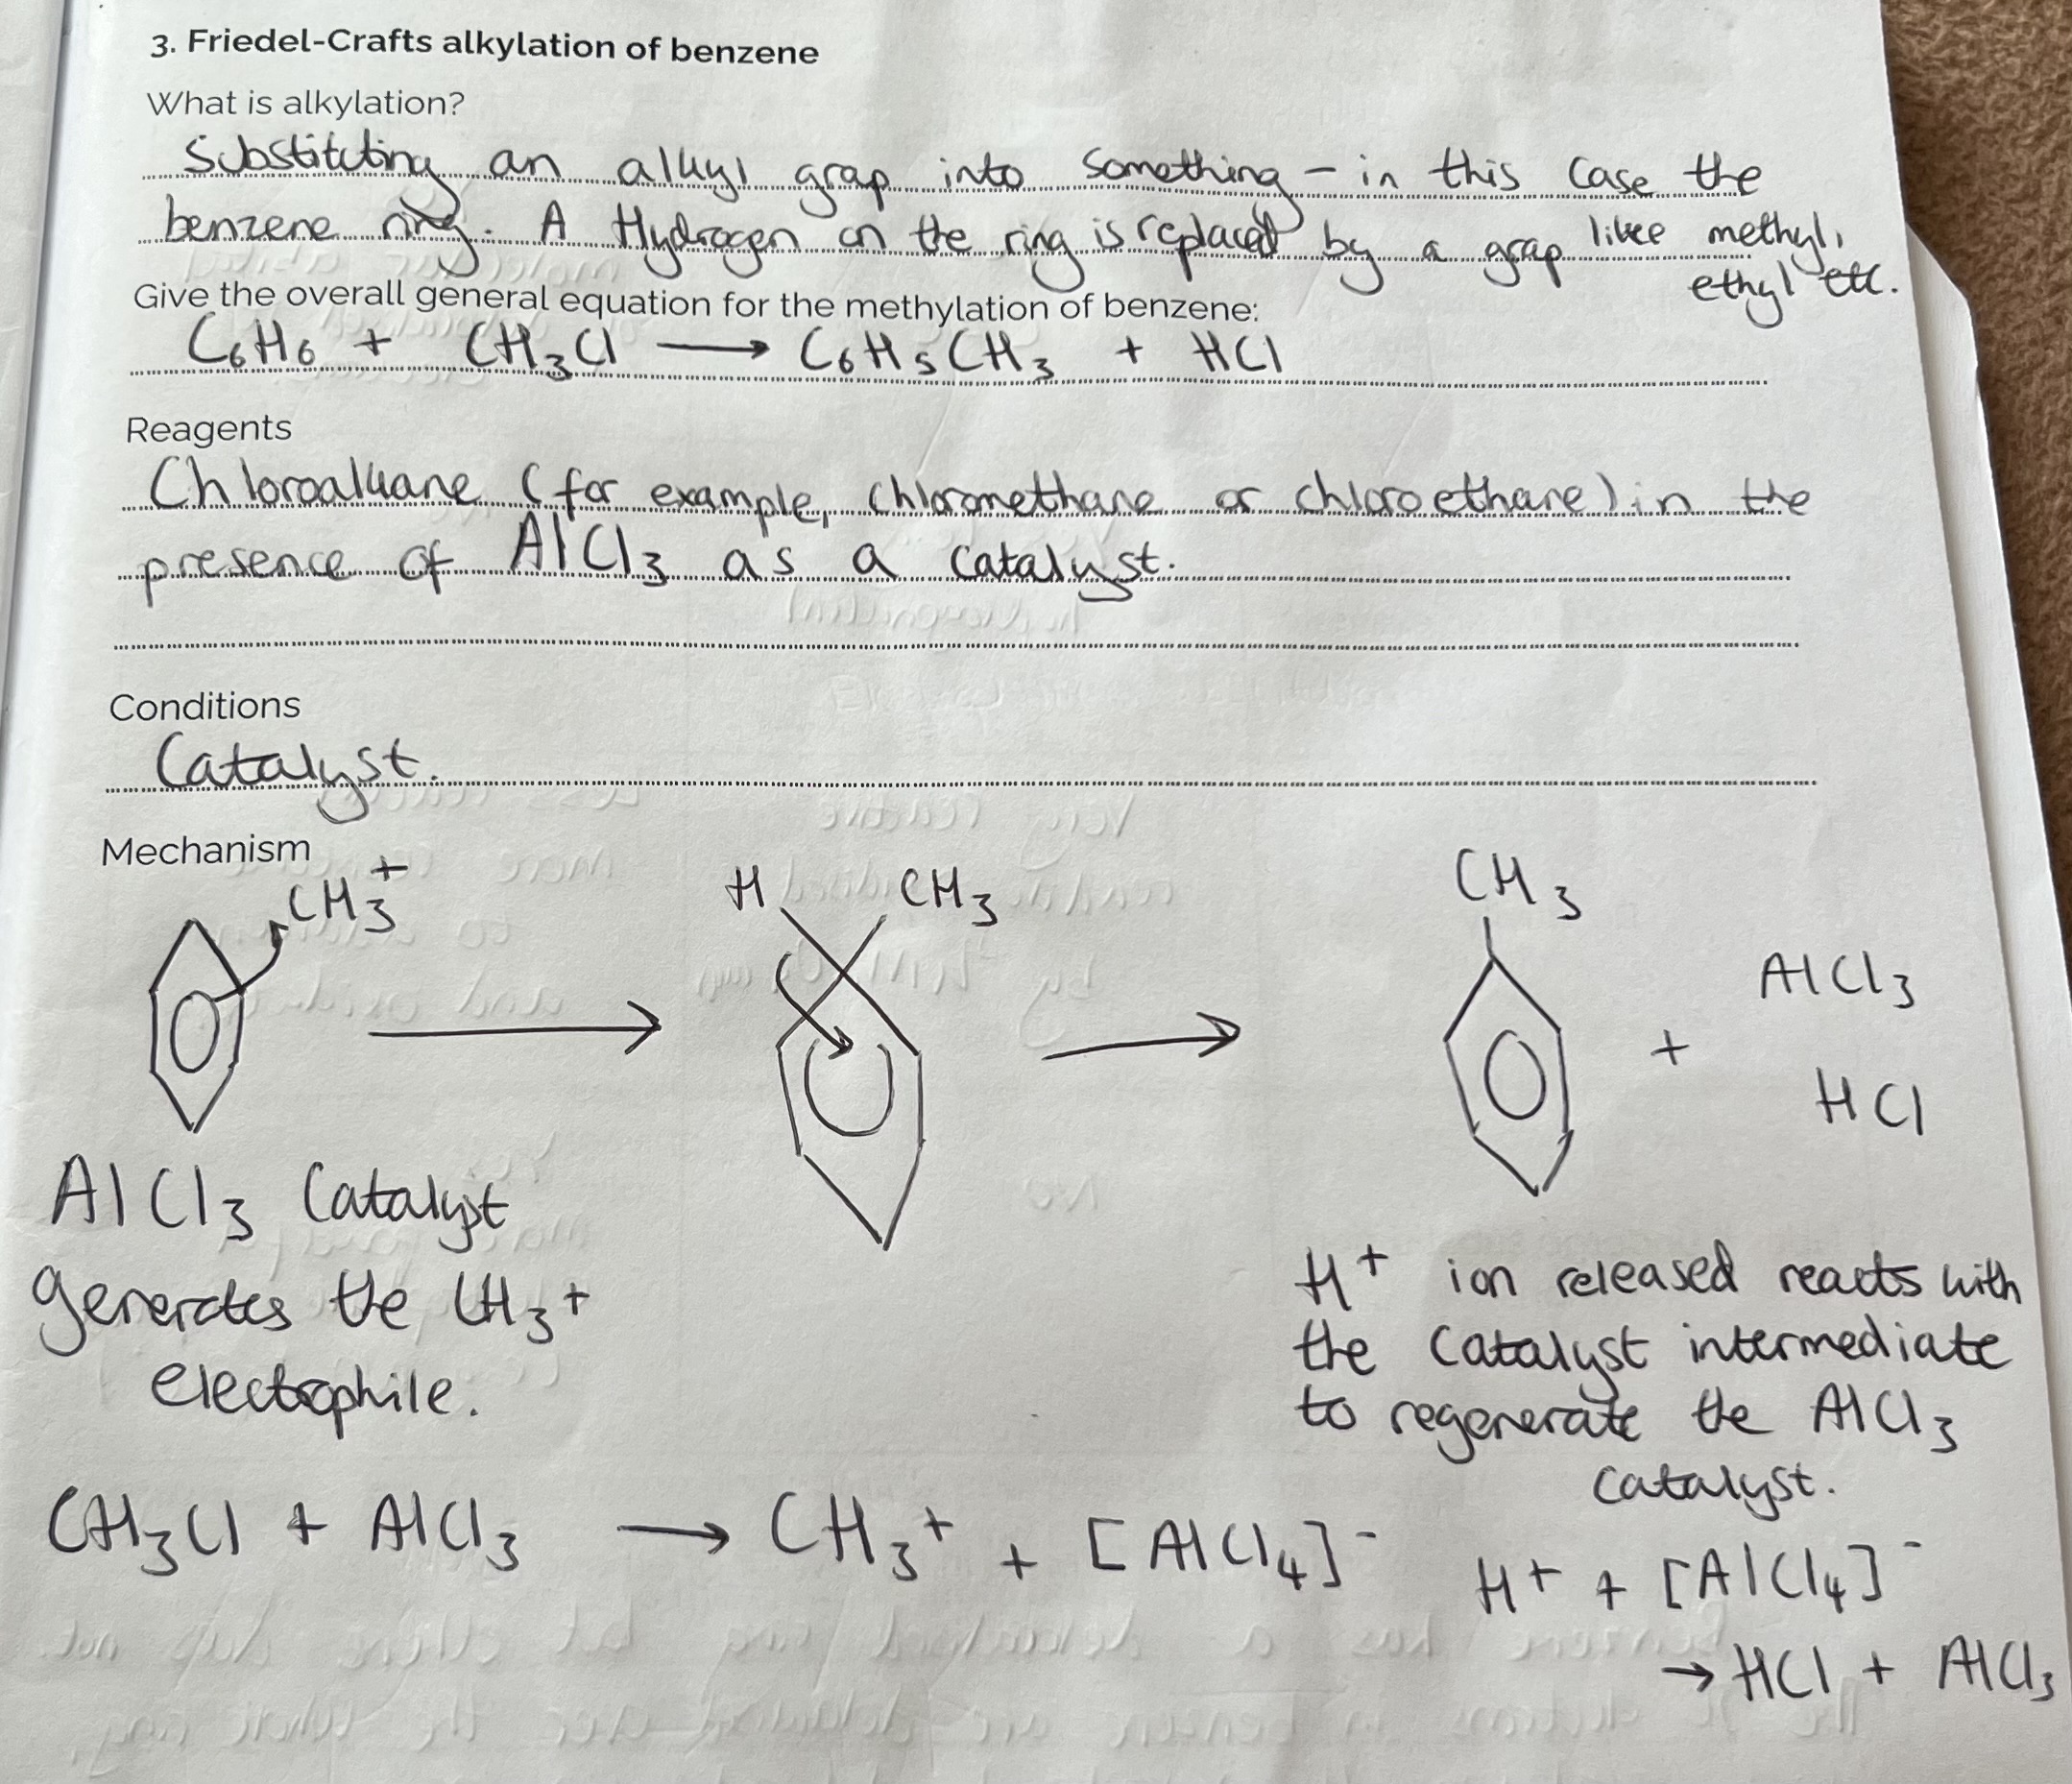 3. Friedel-Crafts alkylation of benzene
What is alkylation?
Substituting an alkyl group into something – in this case the
benzene ring. A Hydrogen on the ring is replaced by a group like methyl,
ethyl etc.
Give the overall general equation for the methylation of benzene:
C6H6 + CH3Cl → C6H5CH3 + HCl
Reagents
Chloroalkane (for example, chloromethane or chloroethane) in the
presence of AlCl3 as a catalyst.
Conditions
Catalyst.
Mechanism
CH3+
H CH3
CH3
+ AlCl3
HCl
AlCl3 Catalyst
generates the CH3+
electrophile.
H+ ion released reacts with
the catalyst intermediate
to regenerate the AlCl3
catalyst.
CH3Cl + AlCl3 → CH3+ + [AlCl4]-
H+ + [AlCl4]-
→ HCl + AlCl3